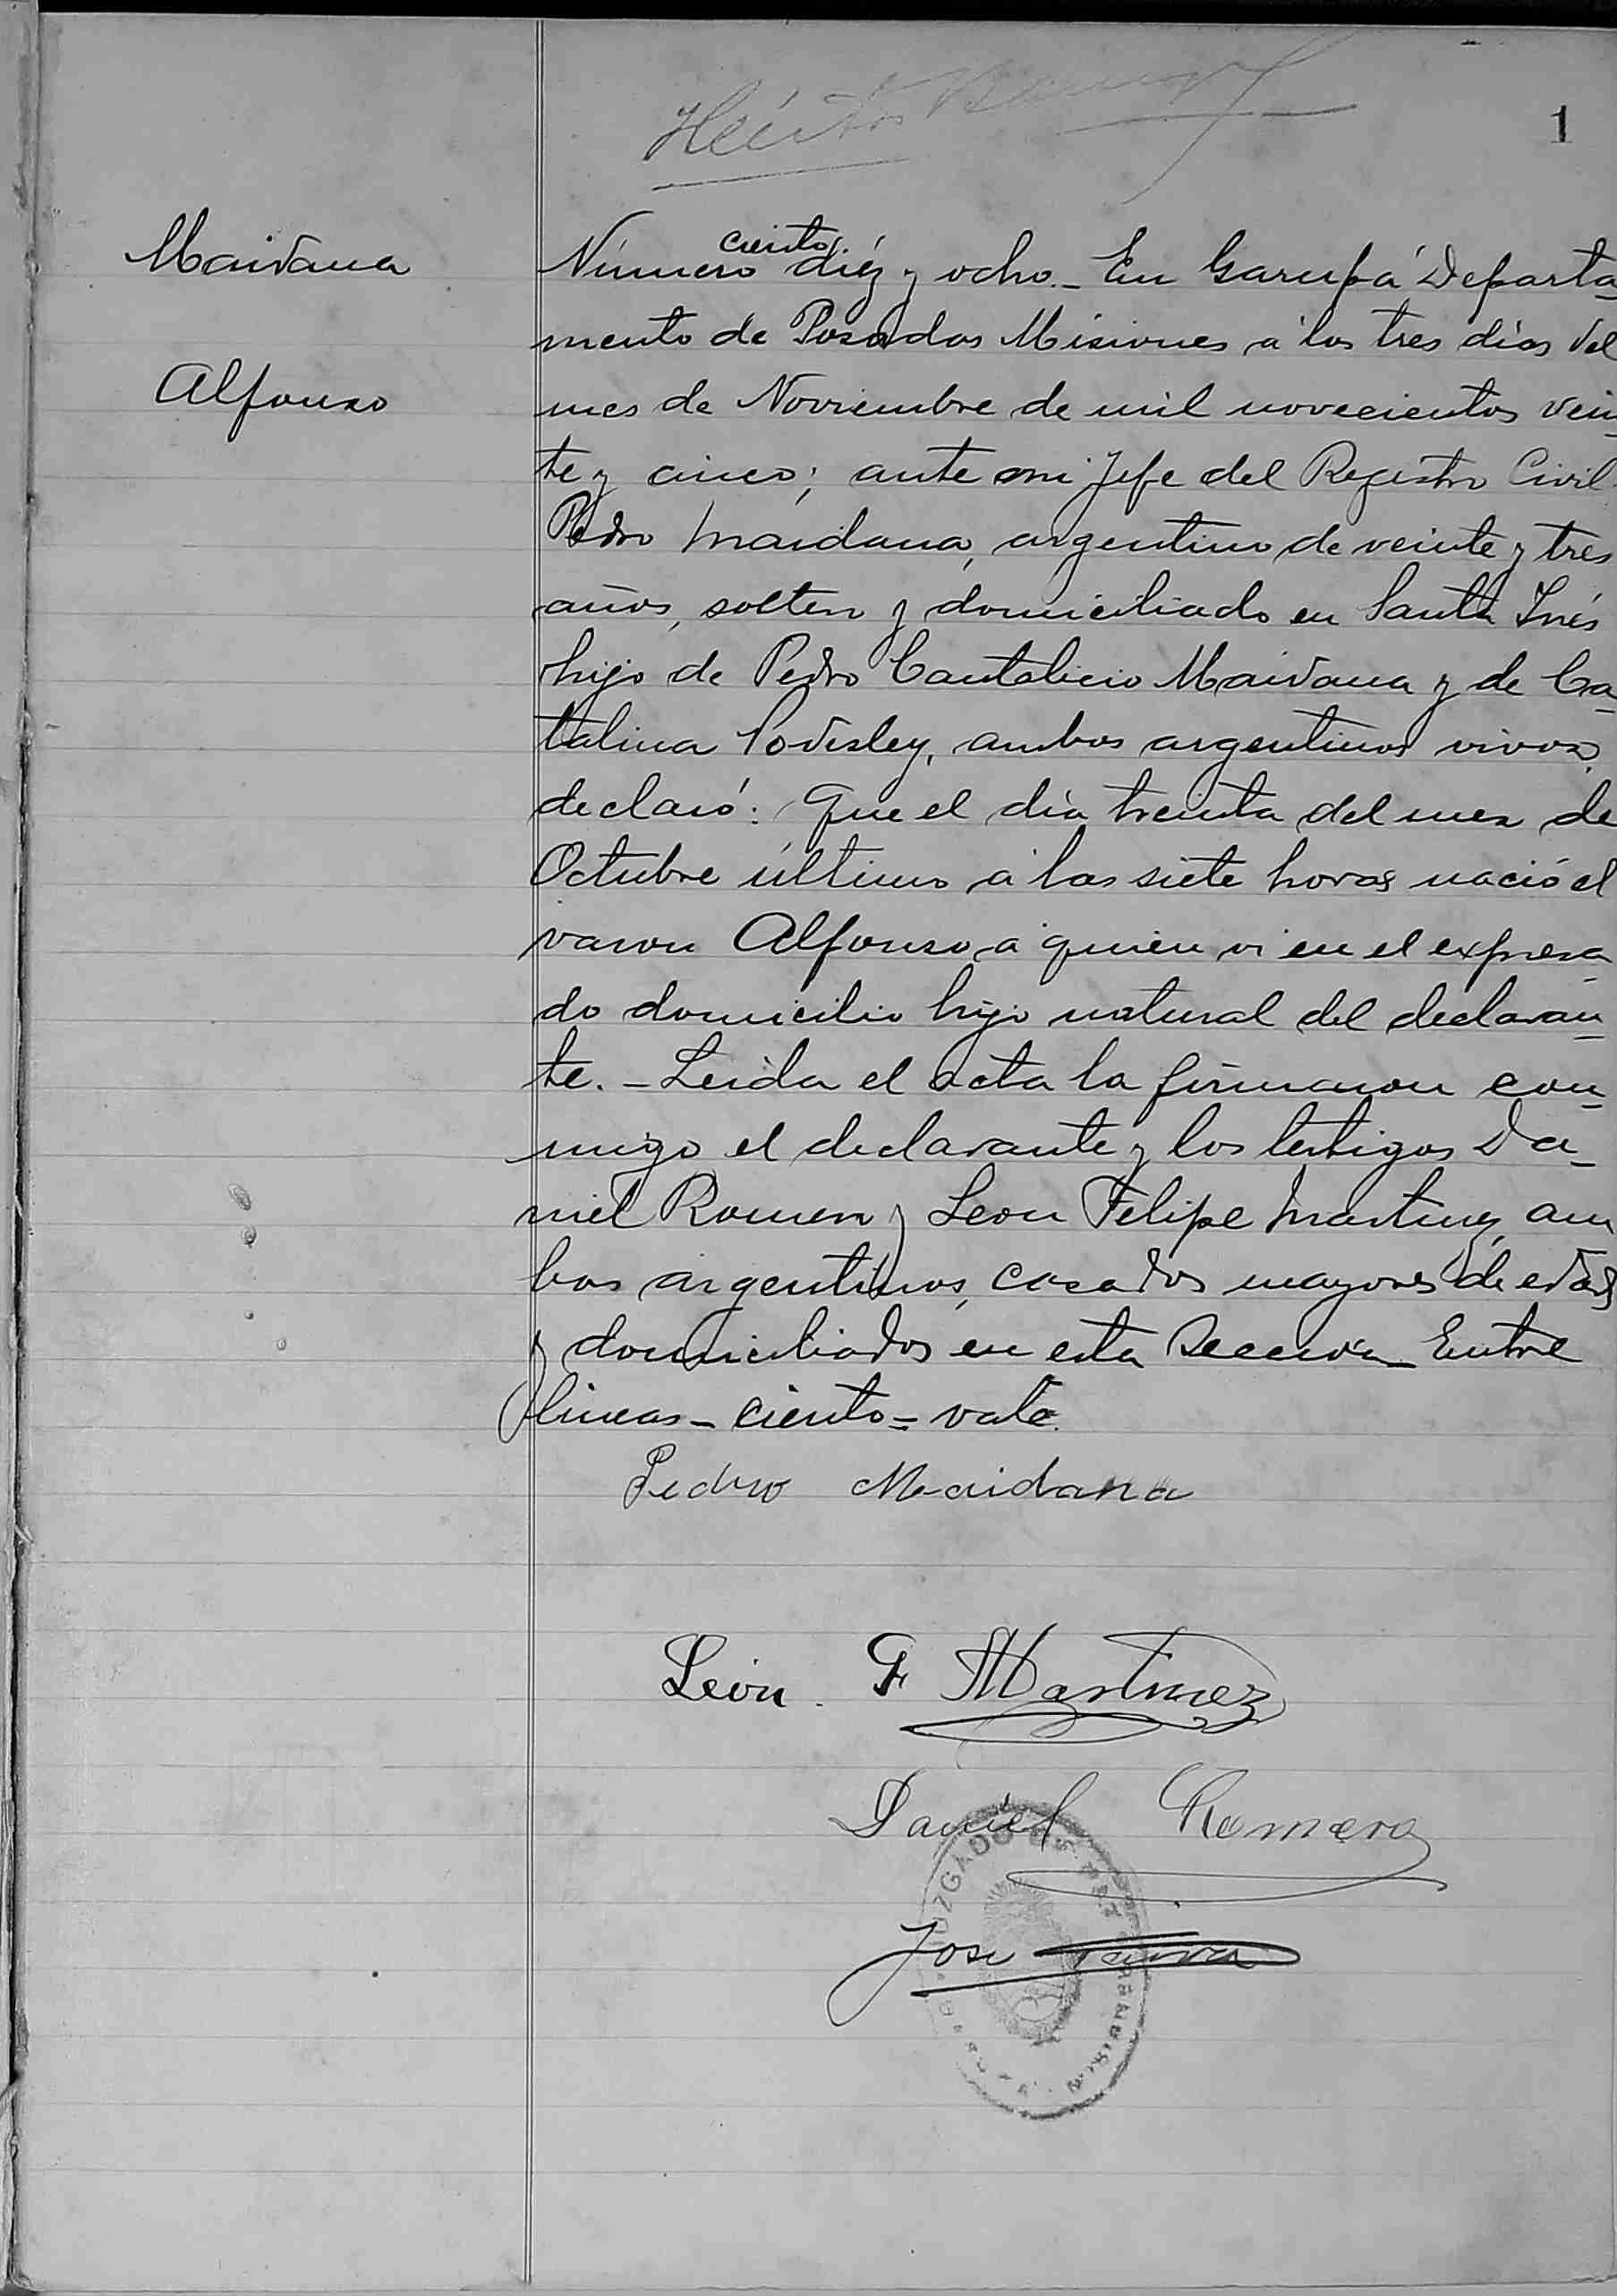 Héctor
1
Maidana
Alfonso
ciento
Número diéz y ocho._ En Garupá Departa-
mento de Posadas Misiones á los tres dias del
mes de Noviembre de mil novecientos vein-
te y cinco; ante mi Jefe del Registro Civil
Pedro Maidana, argentino de veinte y tres
años, soltero y domiciliado en Santa Inés
hijo de Pedro Cantalicio Maidana y de Ca-
talina, ambos argentinos vivos,
declaró: Que el dia treinta del mes de
Octubre último á las siete horas nació el
varon Alfonso á quien vi en el expresa-
do domicilio hijo natural del declaran-
te. - Leida el acta la firmaron con-
migo el declarante y los testigos Da-
niel Romero y Leon Felipe Martinez, am
bos argentinos, casados mayores de edad
y domiciliados en esta Sección_ Entre
lineas - ciento = vale.
Pedro Maidana
León. F Martinez
Daniel Romero
Jose
JUZGADO DE PAZ